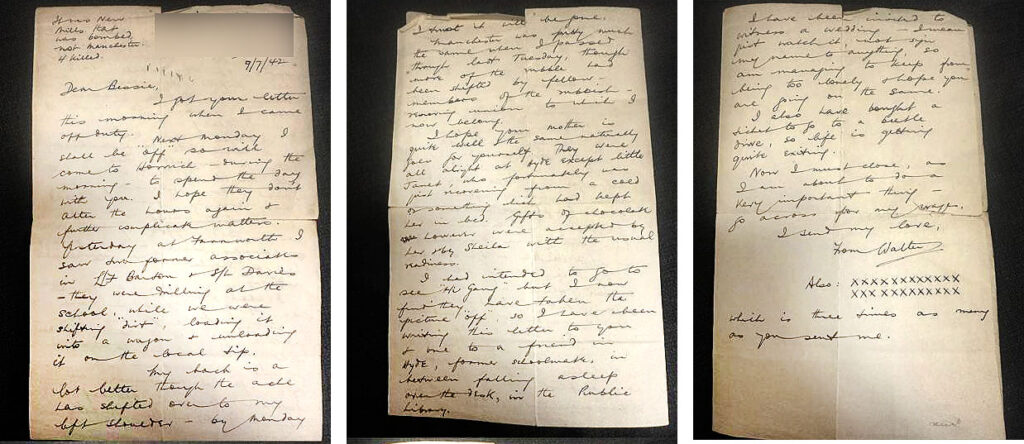 It was New
Mills that
was bombed
not Manchester.
4 killed.
9/7/42
Dear Bessie,
I got your letter
this morning when I came
off duty. Next Monday I
shall be "off" so will
come to Horwich - during the
morning - to spend the day
with you. I hope they don't
alter the hours again &
further complicate matters.
Yesterday at Farnworth I
saw two former associates
in Barton & Davies
- they were drilling at the
school, while we were
shifting dirt, loading it
into a wagon & unloading
it on the local tip.
My back is a
lot better though the ache
has shifted over to my
left shoulder - by Monday
I trust it will be fine.
Manchester was pretty much
the same when I passed
through last Tuesday, though
more of the rubble has
been shifted by fellow-
members of the rubbish-
removing union to which I
now belong.
I hope your mother is
quite well & the same naturally
goes for yourself. They were
all alright at Hyde except little
Janet who fortunately was
just recovering from a cold
or something which had kept
her in bed. Gifts of chocolate
however were accepted by
her & by Sheila with the usual
readiness.
I had intended to go to
see "Hi Gang" but I now
find they have taken the
picture off so I have been
writing this letter to you
& one to a friend in
Hyde, former schoolmate, in
between falling asleep
over the desk, in the Public
Library.
I have been invited to
witness a wedding - I mean
just watch it & not sign
my name to anything, so
am managing to keep from
being too lonely & hope you
are going on the same.
I also have bought a
ticket to go to a beetle
drive, so life is getting
quite exiting.
Now I must close, as
I am about to do a
very important thing -
go across for my wages.
I send my love,
From Walter
Also: XXXXXXXXXXXX
XXX XXXXXXXXX
which is three times as many
as you sent me.